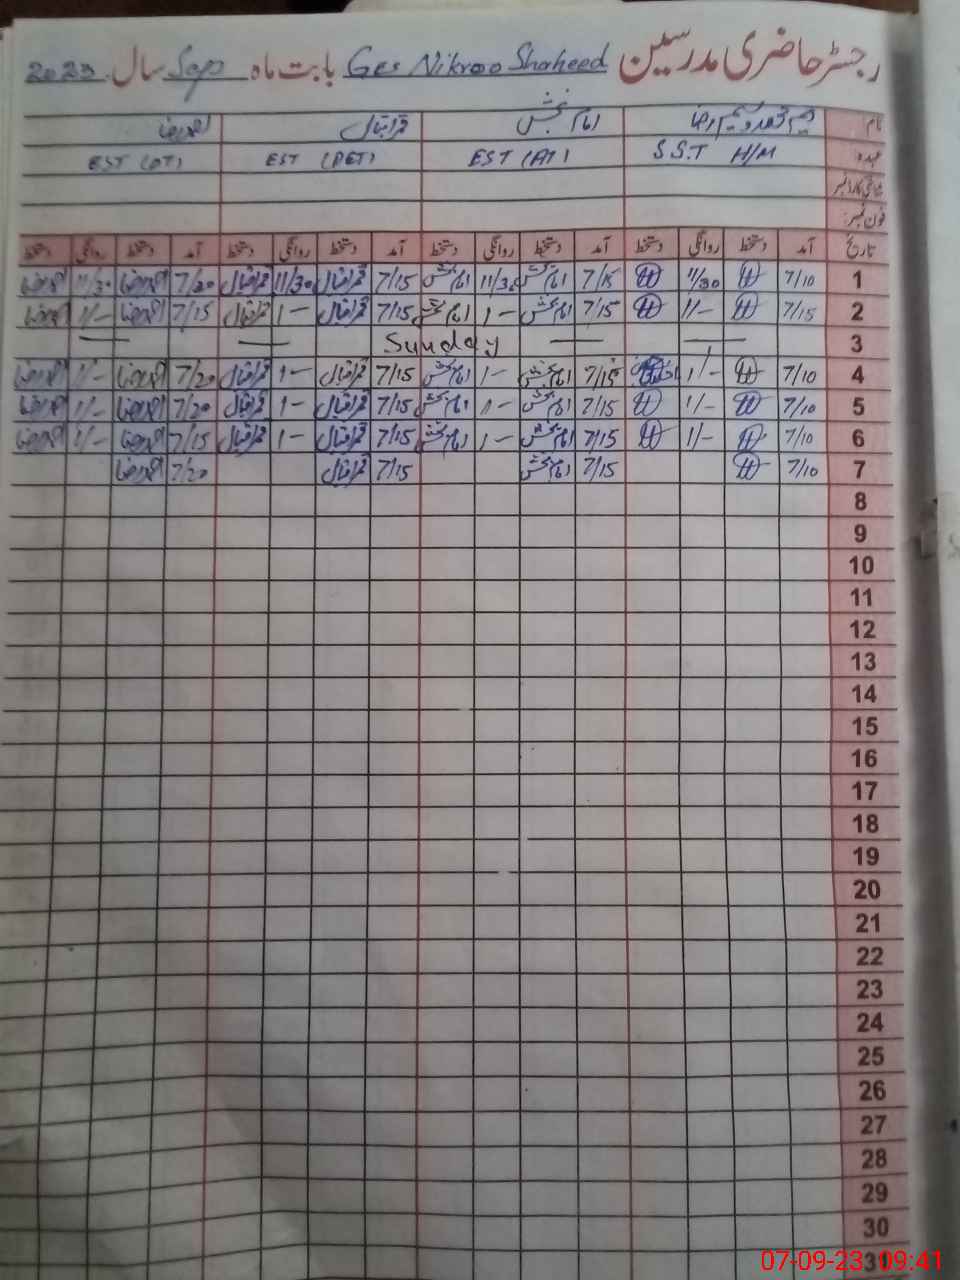 رجسٹر حاضری مدرسین Ges Nikroo Shaheed بابت ماہ Sep سال 2023
نام امام بخش قمر اقبال احمد رضا
عہدہ S.S.T H/M EST (AT) EST (PET) EST (DT)
شناختی کارڈ نمبر
فون نمبر:
تاریخ آمد دستخط روانگی دستخط آمد دستخط روانگی دستخط آمد دستخط روانگی دستخط آمد دستخط روانگی دستخط
1 7/10 11/30 7/15 امام بخش 11/30 امام بخش 7/15 قمر اقبال 11/30 قمر اقبال 7/20 احمد رضا 11/30 احمد رضا
2 7/15 1/- 7/15 امام بخش 1- امام بخش 7/15 قمر اقبال 1- قمر اقبال 7/15 احمد رضا 1/- احمد رضا
3 — — Sunday — —
4 7/10 1/- 7/15 امام بخش 1- امام بخش 7/15 قمر اقبال 1- قمر اقبال 7/20 احمد رضا 1/- احمد رضا
5 7/10 1/- 7/15 امام بخش 1- امام بخش 7/15 قمر اقبال 1- قمر اقبال 7/20 احمد رضا 1/- احمد رضا
6 7/10 1/- 7/15 امام بخش 1- امام بخش 7/15 قمر اقبال 1- قمر اقبال 7/15 احمد رضا 1/- احمد رضا
7 7/10 7/15 امام بخش 7/15 قمر اقبال 7/20 احمد رضا
8
9
10
11
12
13
14
15
16
17
18
19
20
21
22
23
24
25
26
27
28
29
30
31
07-09-23 09:41